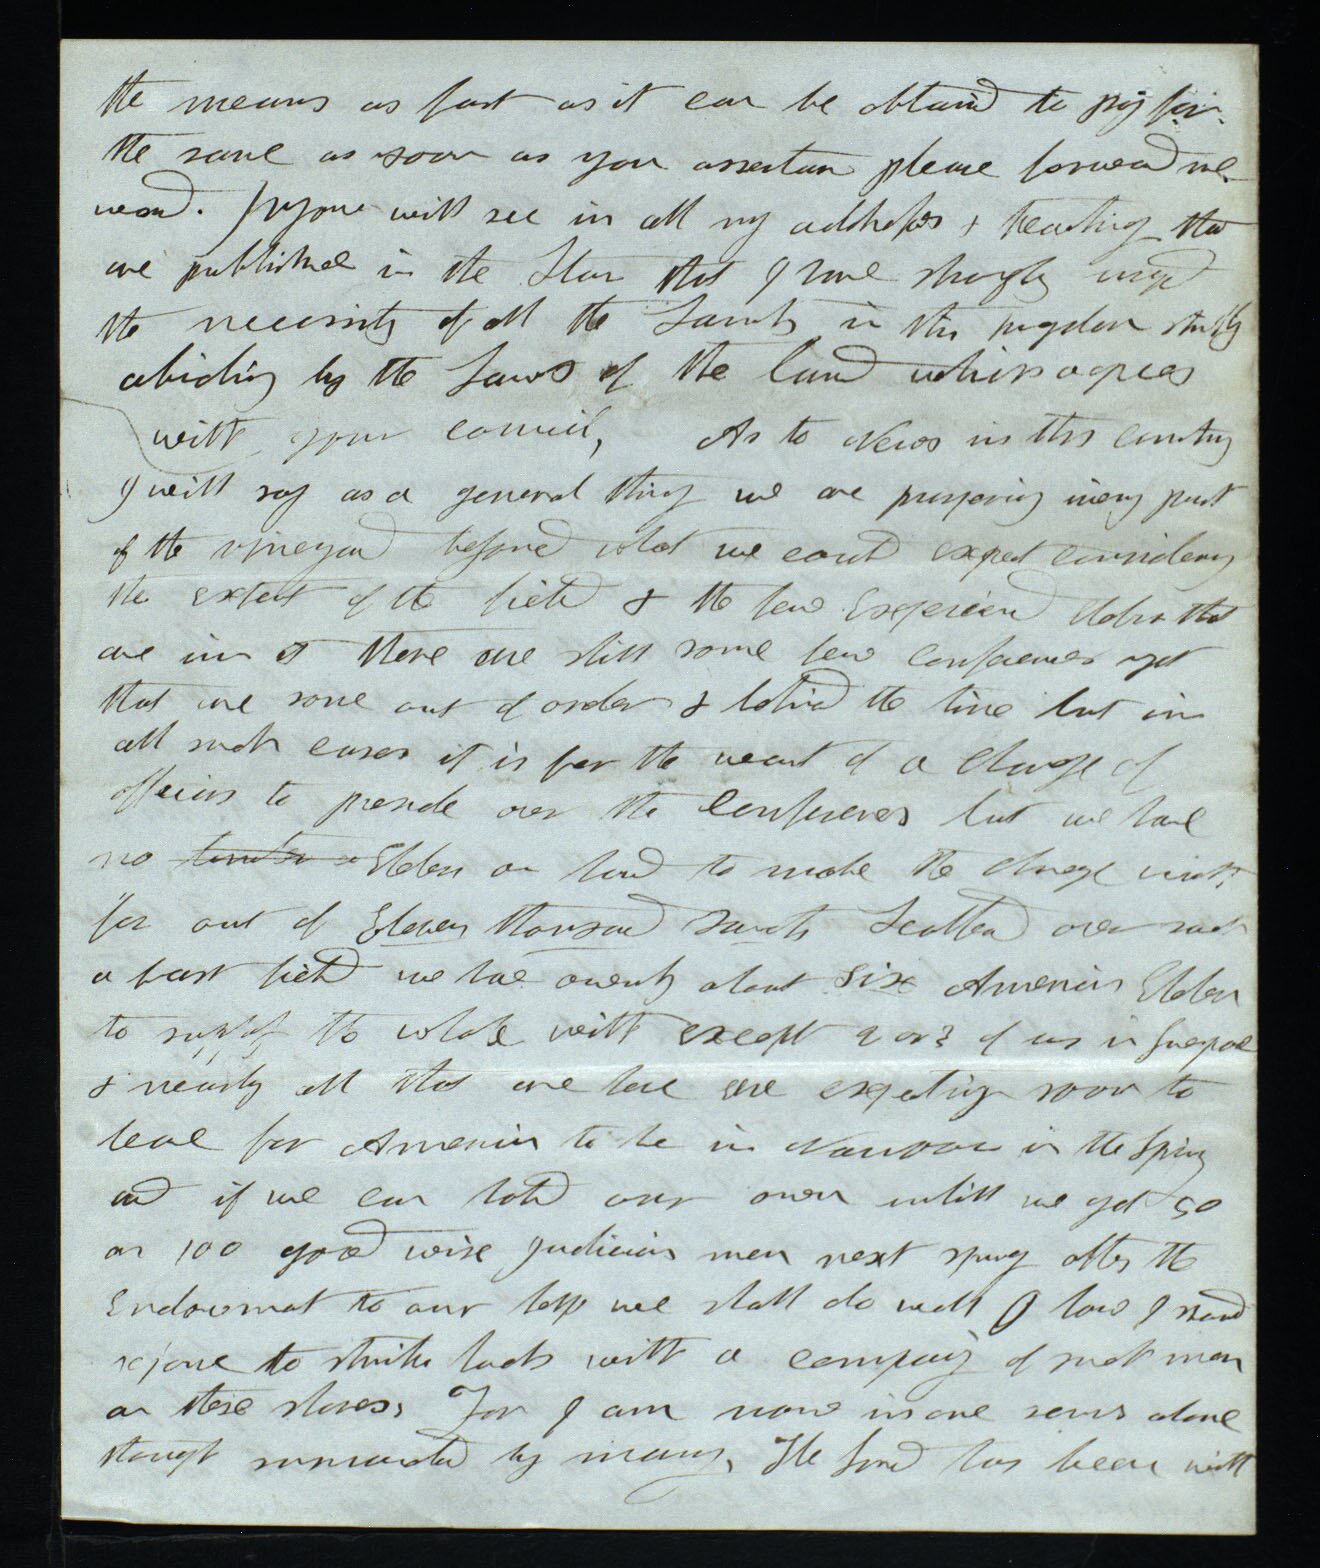 the means as fast as it can be obtaind to pay for
the same as soon as you assertain please forward me
word. you will see in all my addresses & teaching that
are published in the Star that I have strongly urged
the necessity of all the Saints in this kingdom strictly
abiding by the Laws of the land which agrees
with your council, As to News in this country
I will say as a general thing we are prospering in evry part
of the vineyard beyond what we could expect considering
the extent of the field & the few Experiend Elders that
are in it there are still some few conferences yet
that are some out of order & behind the time but in
all such cases it is for the want of a change of
officers to preside over the Conferences but we have
no Elders on hand to make the change with
for out of Eleven thousand Saints Scatterd over such
a vast field we have ownly about six American Elders
to supply the whole with except 2 or 3 of us in Liverpool
& nearly all that are here are expecting soon to
leave for America to be in Nauvoo in the Spring
and if we can hold our own untill we get 50
or 100 good wise judicious men next spring after the
Endowment to our help we shall do well O how I should
rejoice to strike hands with a company of such men
on these shores, For I am now in one sens alone
though surrounded by many, The Lord has been with